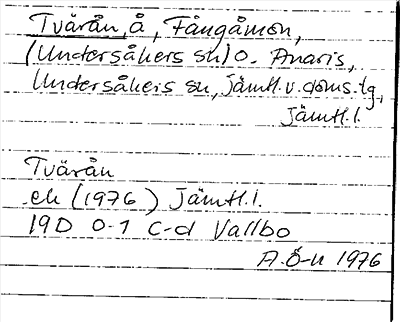 Tvärån, å, Fångåmon,
(Undersåkers sn) o. Anaris,
Undersåkers sn, Jämtl. v. doms.lg,
Jämtl. l.
Tvärån
ek (1976) Jämtl. l.
19D 0-1 c-d Vallbo
A.Ö-n 1976